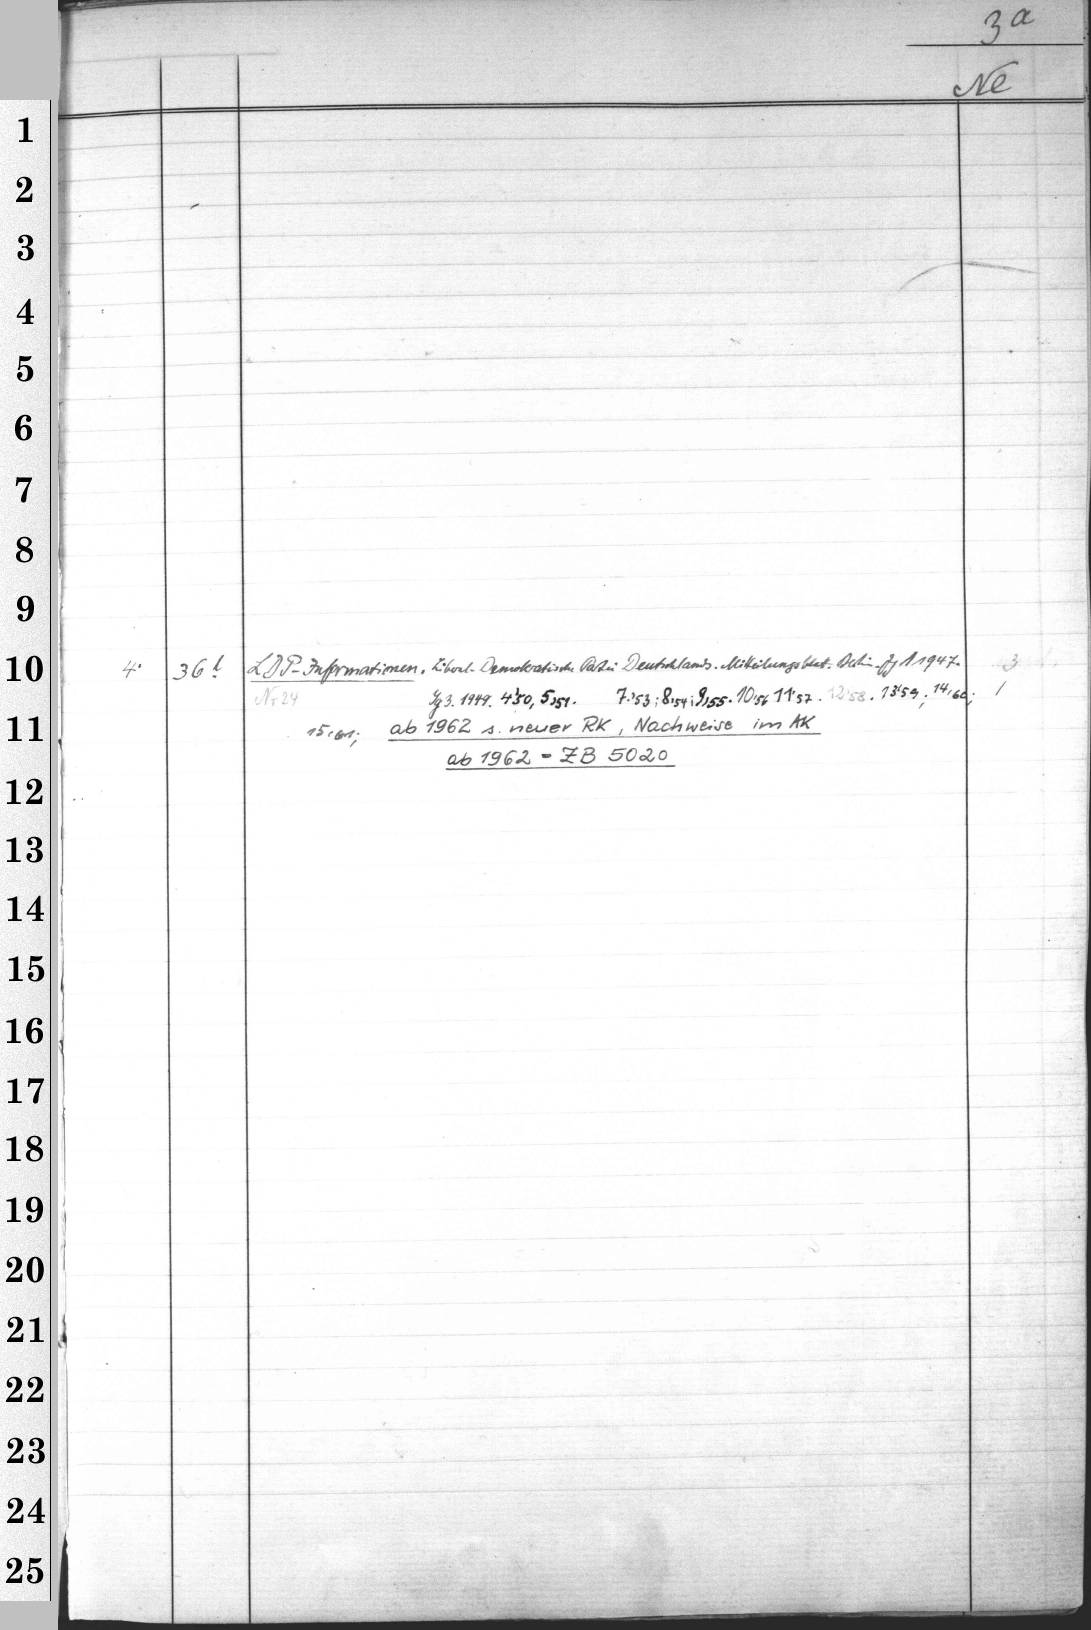 3a
Ne
1
2
3
4
5
6
7
8
9
10 4° 36 l LDP-Informationen. Liberal-Demokratische Partei Deutschlands. Mitteilungsblatt. Berlin. Jg 1 1947. 3
Nr 24 Jg 3. 1949. 4'50, 5,51. 7.'53; 8,54; 9,55. 10,56 11'57. 12'58. 13'59; 14,60; 1
11 15,61; ab 1962 s. neuer RK, Nachweise im AK
ab 1962 = ZB 5020
12
13
14
15
16
17
18
19
20
21
22
23
24
25